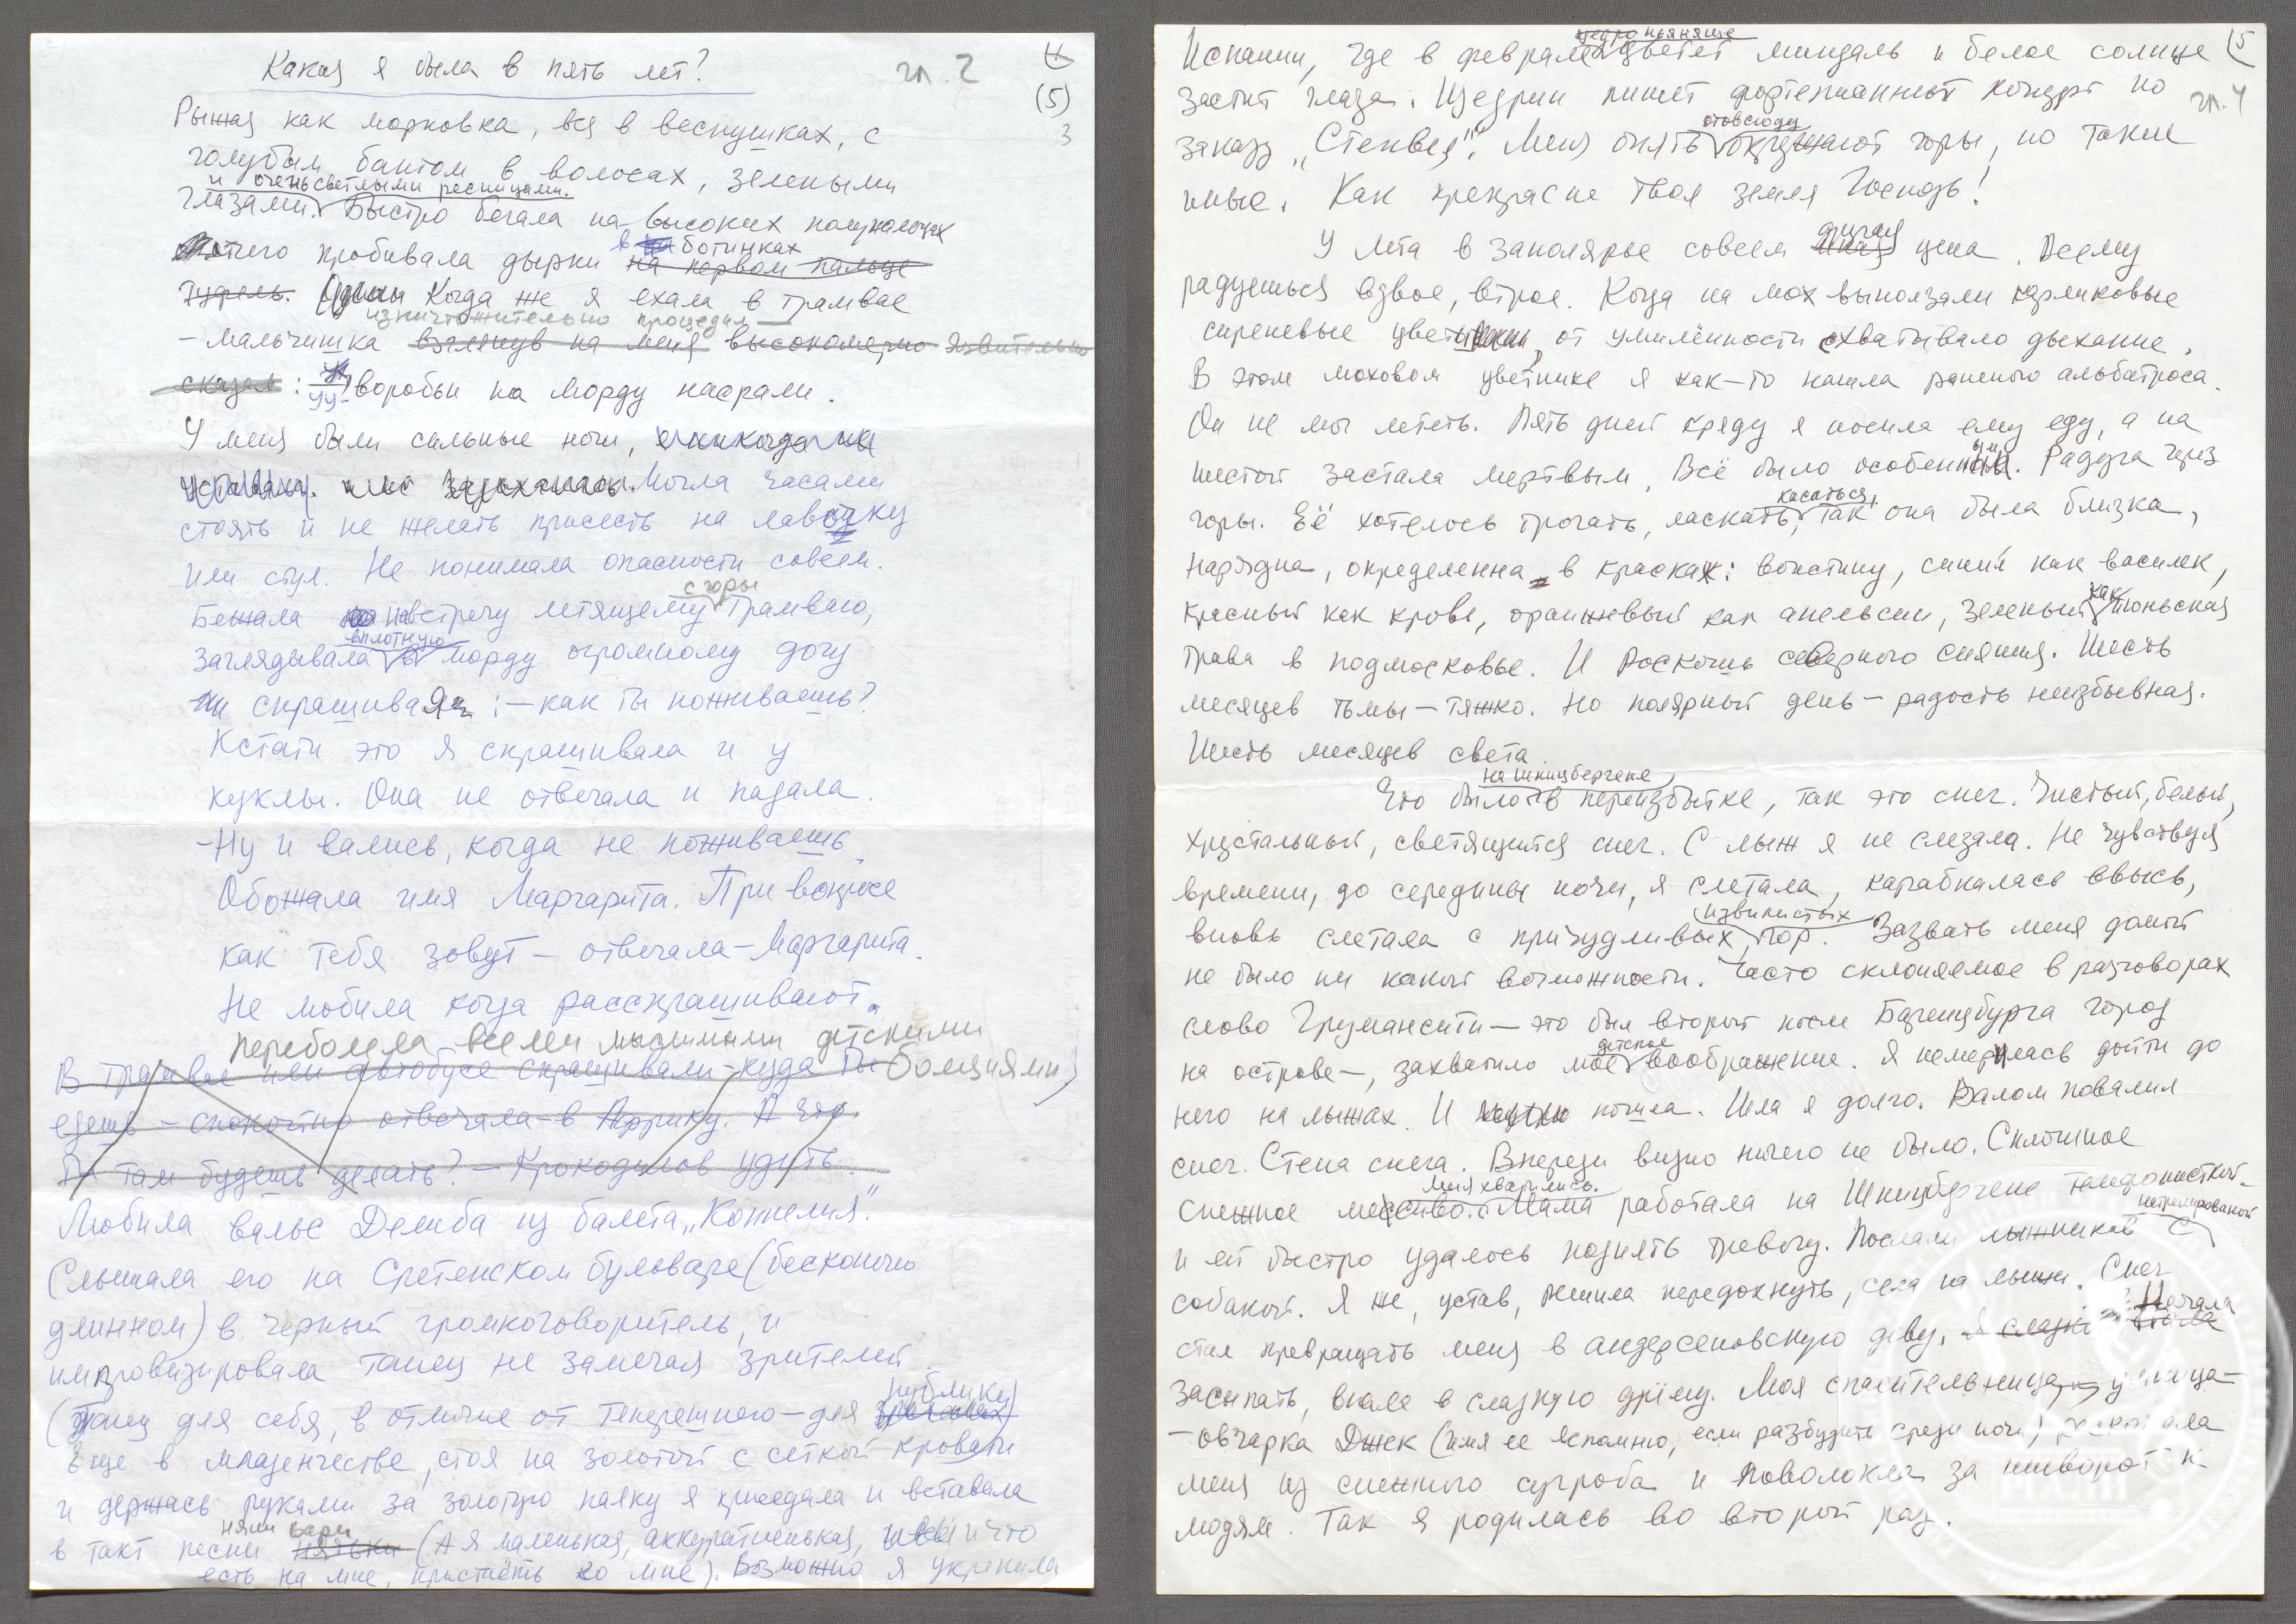 Какая я была в пять лет?
гл. 2
4
(5)
3
Рыжая как морковка, вся в веснушках, с
голубым бантом в волосах, зелеными
и очень светлыми ресницами.
глазами. Быстро бегала на высоких полупальцах
отчего пробивала дырки на первом пальце
в ботинках
туфель. Когда же я ехала в трамвае
изничтожительно процедил
– мальчишка взглянув на меня высокомерно язвительно
сказал : уу- воробьи на морду насрали.
У меня были сильные ноги, никогда не
уставали. Могла часами
стоять и не желать присесть на лавочку
или стул. Не понимала опасности совсем.
с горы
Бежала навстречу летящему трамваю,
вплотную
заглядывала в морду огромному догу
спрашивая : – как ты поживаешь?
Кстати это я спрашивала и у
куклы. Она не отвечала и падала.
– Ну и вались, когда не поживаешь.
Обожала имя Маргарита. При вопросе
как тебя зовут – отвечала – Маргарита.
Не любила когда расспрашивают.
переболела всеми мыслимыми детскими
болезнями
В трамвае или автобусе спрашивали – куда ты
едешь – спокойно отвечала – в Африку. А что
ты там будешь делать? – Крокодилов удить.
Любила вальс Делиба из балета „Коппелия".
Слышала его на Сретенском бульваре (бесконечно
длинном) в черный громкоговоритель, и
импровизировала танец не замечая зрителей.
публики)
(танец для себя, в отличие от теперешнего – для зрителей)
Еще в младенчестве, стоя на золотой с сеткой кровати
и держась руками за золотую палку я приседала и вставала
няни Вари
в такт песни няньки (А я маленькая, аккуратненькая, и что
есть на мне, пристаёть ко мне). Возможно я укрепила
(5
гл. 4
щедро пьяняще
Испании, где в феврале цветет миндаль и белое солнце
застит глаза. Щедрин пишет фортепианный концерт по
отовсюду
заказу „Стенвея". Меня опять окружают горы, но такие
иные. Как прекрасна твоя земля Господь!
другая
У лета в Заполярье совсем иная цена. Всему
радуешься вдвое, втрое. Когда на мох выползали карликовые
сиреневые цветы, от умилённости схватывало дыхание.
В этом моховом цветнике я как-то нашла раненого альбатроса.
Он не мог лететь. Пять дней кряду я носила ему еду, а на
шестой застала мертвым. Всё было особенным. Радуга через
касаться,
горы. Её хотелось трогать, ласкать, так она была близка,
нарядна, определенна в красках: воистину, синий как василек,
как
красный как кровь, оранжевый как апельсин, зеленый июньская
трава в подмосковье. И роскошь северного сияния. Шесть
месяцев тьмы – тяжко. Но полярный день – радость неизбывная.
Шесть месяцев света.
на Шпицбергене
Что было в переизбытке, так это снег. Чистый, белый,
хрустальный, светящийся снег. С лыж я не слезала. Не чувствуя
времени, до середины ночи, я слетала, карабкалась ввысь,
извилистых
вновь слетала с причудливых гор. Зазвать меня домой
не было ни какой возможности. Часто склоняемое в разговорах
слово Грумансити – это был второй после Баренцбурга город
детское
на острове –, захватило мое воображение. Я намерилась дойти до
него на лыжах. И пошла. Шла я долго. Валом повалил
снег. Стена снега. Впереди видно ничего не было. Сплошное
меня хватились.
снежное месиво. Мама работала на Шпицбергене телефонисткой –
натренированой
и ей быстро удалось поднять тревогу. Послали лыжников с
собакой. Я же, устав, решила передохнуть, села на лыжи. Снег
Начала
стал превращать меня в андерсеновскую деву.
засыпать, впала в сладкую дрёму. Моя спасительница умница –
– овчарка Джек (имя ее вспомню, если разбудить среди ночи) раскопала
меня из снежного сугроба и поволокла за шиворот к
людям. Так я родилась во второй раз.